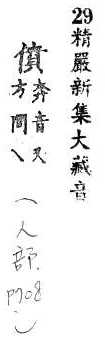 29精嚴新集大藏音
僨
奔音又
方問乀
(人部 p708)